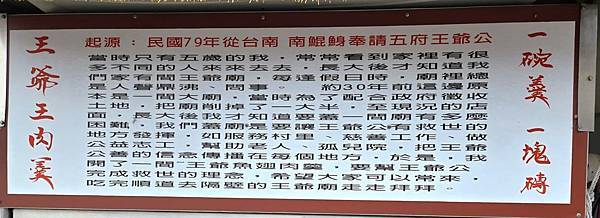 王爺王肉羹
起源：民國79年從台南 南鯤鯓奉請五府王爺公
當時只有五歲的我，常常看到家裡有很
多不同的人來來去去，長大後才知道我
們家有間王爺廟，每逢假日時，廟裡總
是人聲鼎沸、問事。大約30年前這邊原
本是一間大廟，當時為了配合政府徵收
土地，把廟削掉了一大半，至現況的店
面，長大後才知道要蓋一間有多麼的
困難，我們蓋廟要讓王爺公救世的
地方發揮，如服務村里、慈善工作、做
公益志工，幫助老人、孤兒院，把王爺
公善的信念傳播在每個地方，於是，我
開了一間王爺魚翅肉羹，要幫王爺公
完成救世的理念，希望大家可以常來，
吃完順道去隔壁的王爺廟走走拜拜。
一碗羹 一塊磚